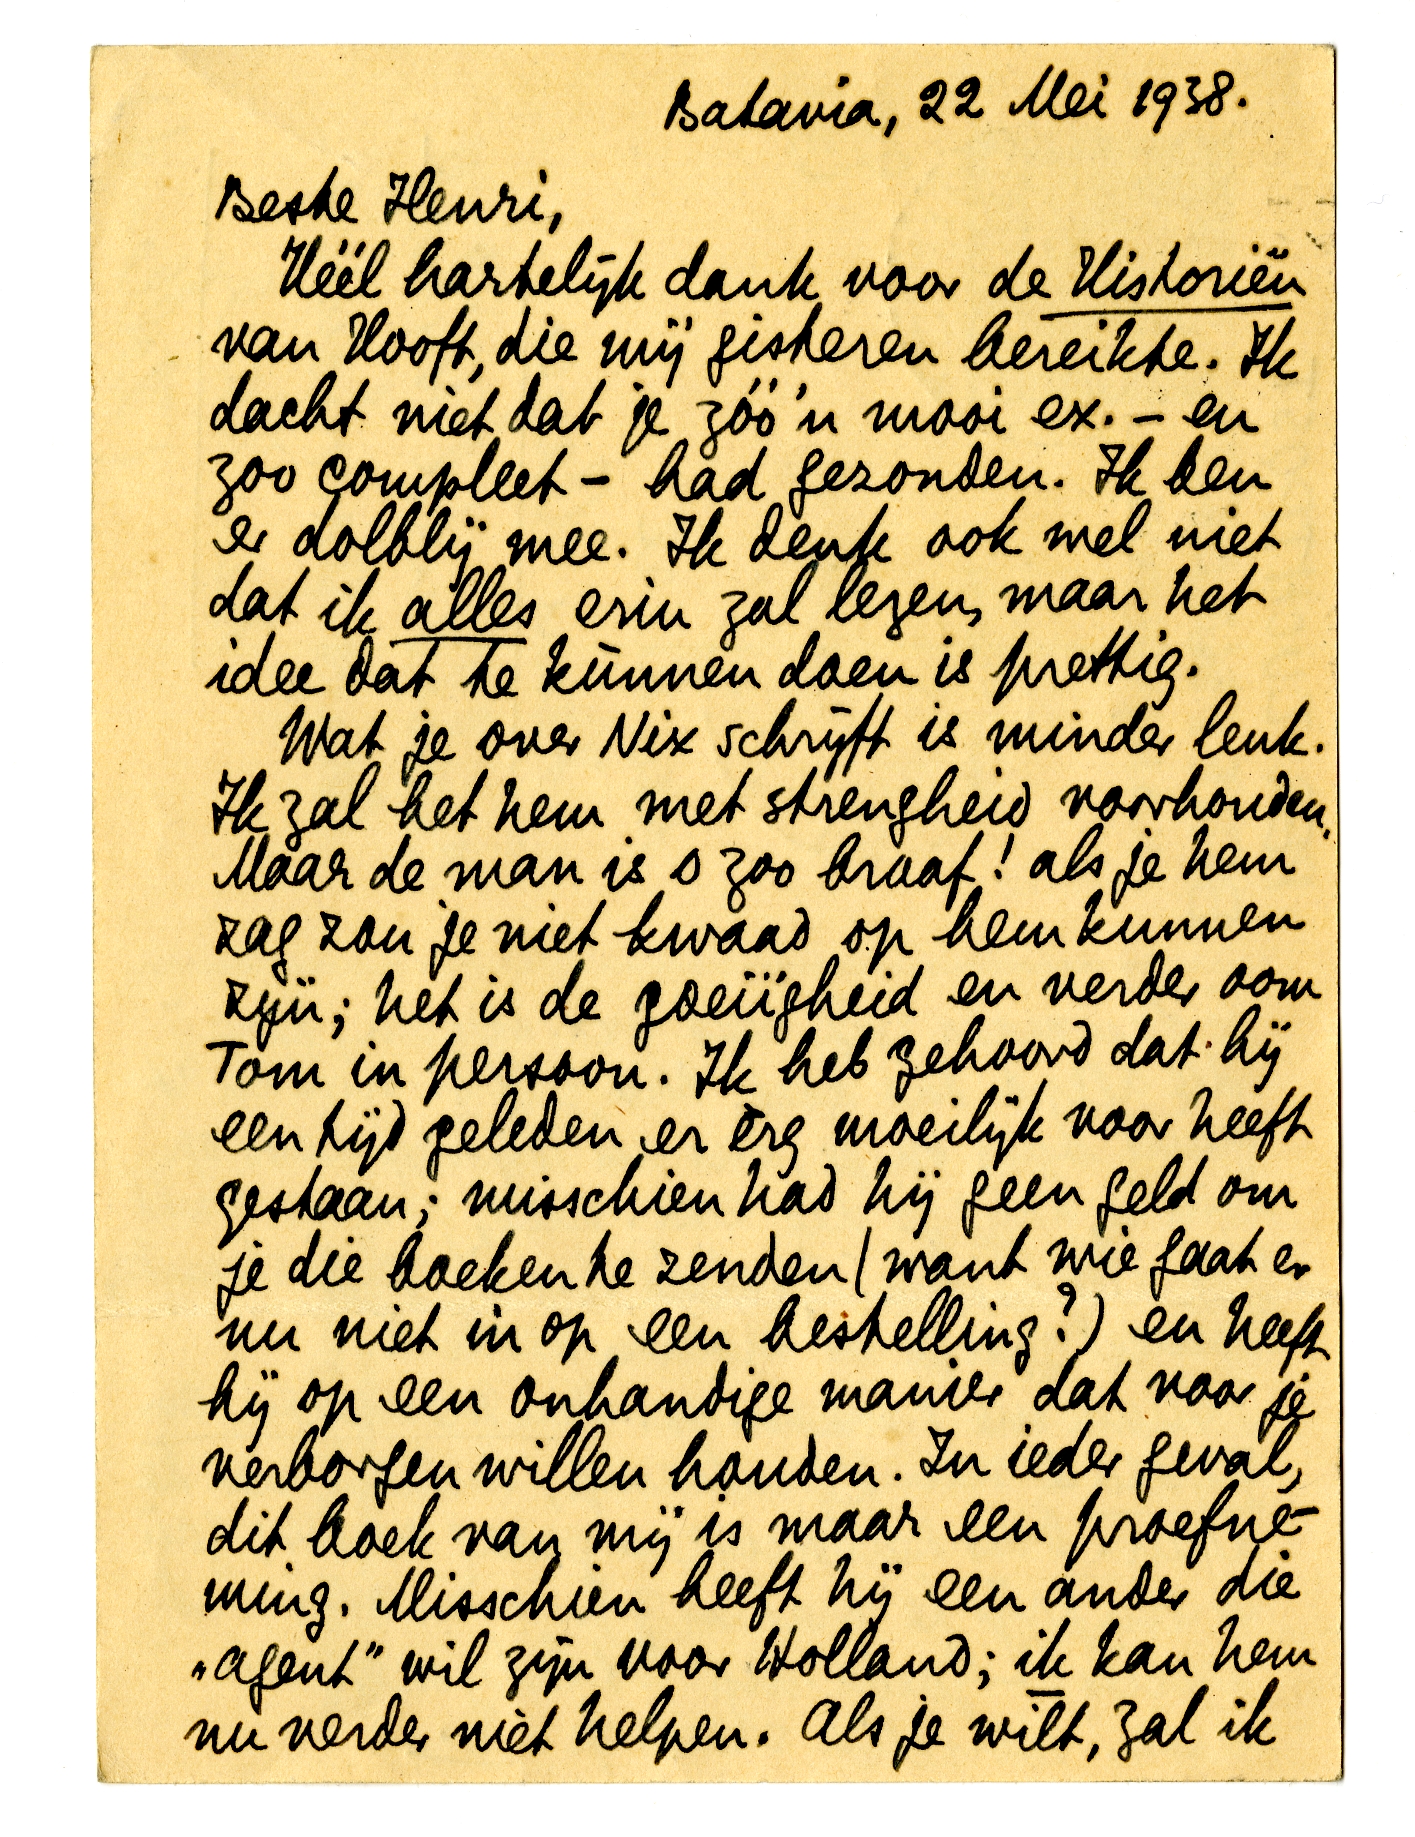 Batavia, 22 Mei 1938.
Beste Henri,
Héél hartelijk dank voor de Historiën
van Hooft, die mij gisteren bereikte. Ik
dacht niet dat je zóó'n mooi ex. – en
zoo compleet – had gezonden. Ik ben
er dolblij mee. Ik denk ook wel niet
dat ik alles erin zal lezen, maar het
idee dat te kùnnen doen is prettig.
Wat je over Nix schrijft is minder leuk.
Ik zal het hem met strengheid voorhouden.
Maar de man is o zoo braaf! als je hem
zag zou je niet kwaad op hem kunnen
zijn; het is de goeiïgheid en verder oom
Tom in persoon. Ik heb gehoord dat hij
een tijd geleden er èrg moeilijk voor heeft
gestaan; misschien had hij geen geld om
je die boeken te zenden (want wie gaat er
nu niet in op een bestelling?) en heeft
hij op een onhandige manier dat voor je
verborgen willen houden. In ieder geval,
dit boek van mij is maar een proefne-
ming. Misschien heeft hij een ander die
„agent” wil zijn voor Holland; ik kan hem
nu verder niet helpen. Als je wilt, zal ik